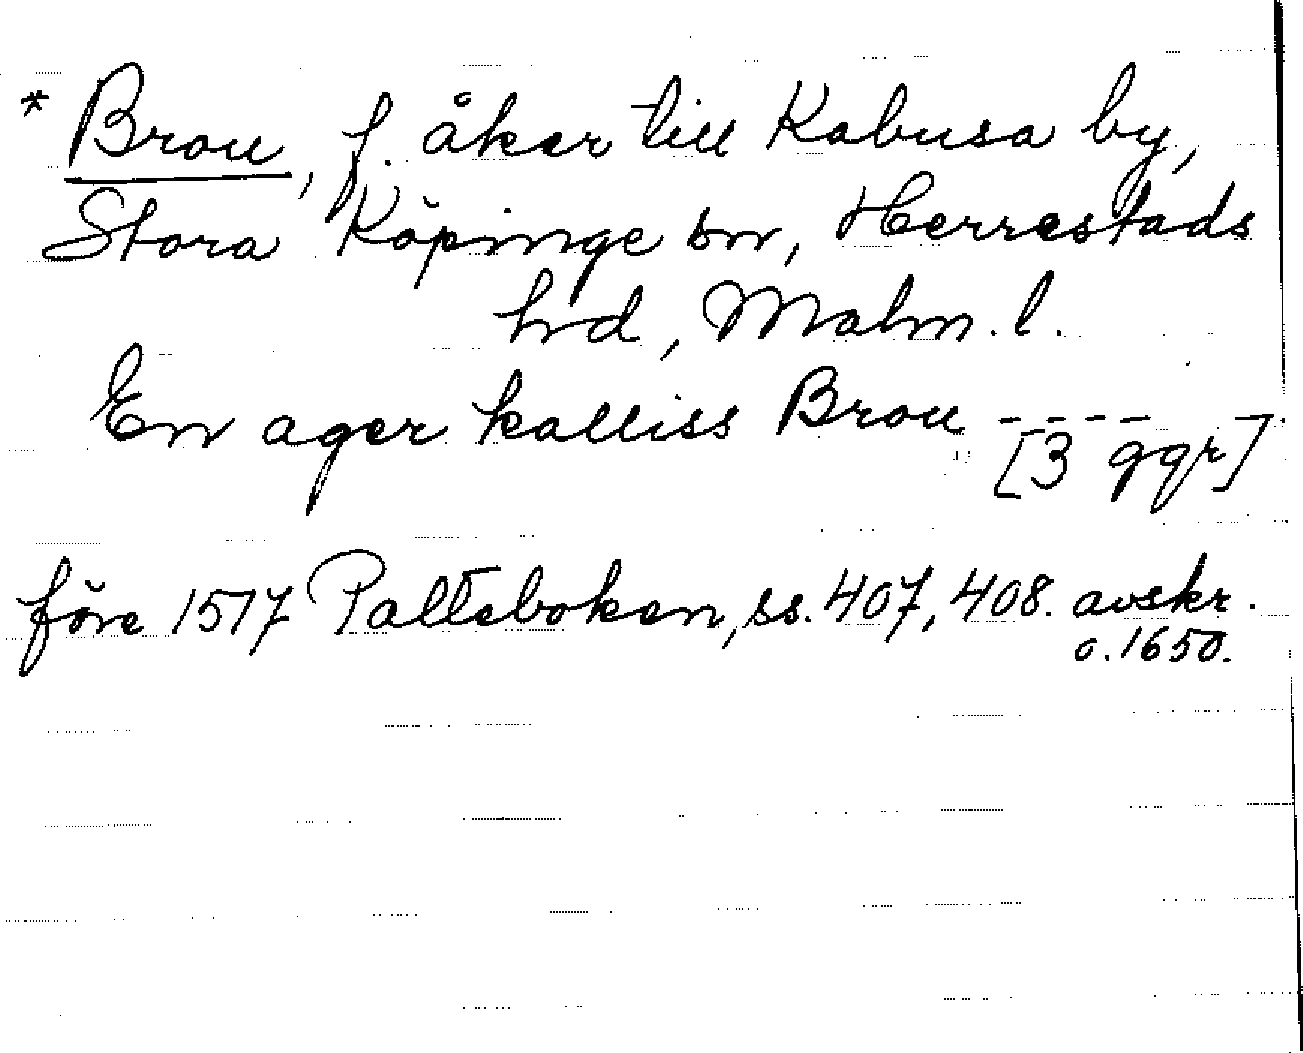 * Brou, f. åker till Kabusa by,
Stora Köpinge sn, Herrestads
hrd, Malm. l.
En ager kalliss Brou - - - -
[3 ggr]
före 1517 Palteboken, ss. 407, 408. avskr.
c. 1650.